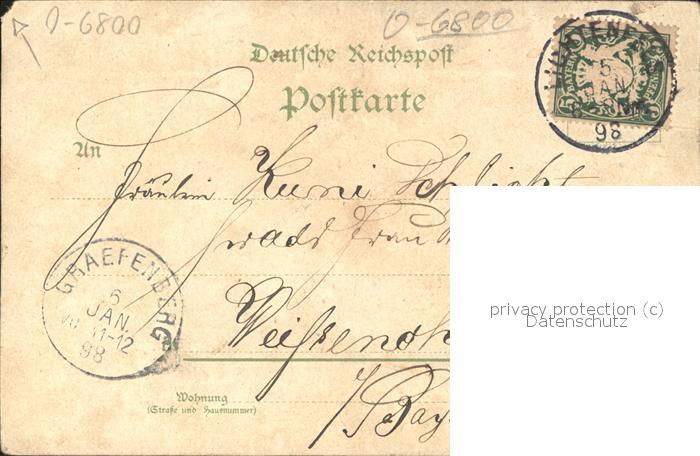 0-6800 0-6800
Deutsche Reichspost
Postkarte
BAYERN
5
JAN
98
An
Fräulein Kuni Schlicht
Frau
GRAEFENBERG
6
JAN.
VM 11-12
98
Weißenoh
privacy protection (c)
Datenschutz
Wohnung
(Straße und Hausnummer)
i/Bay